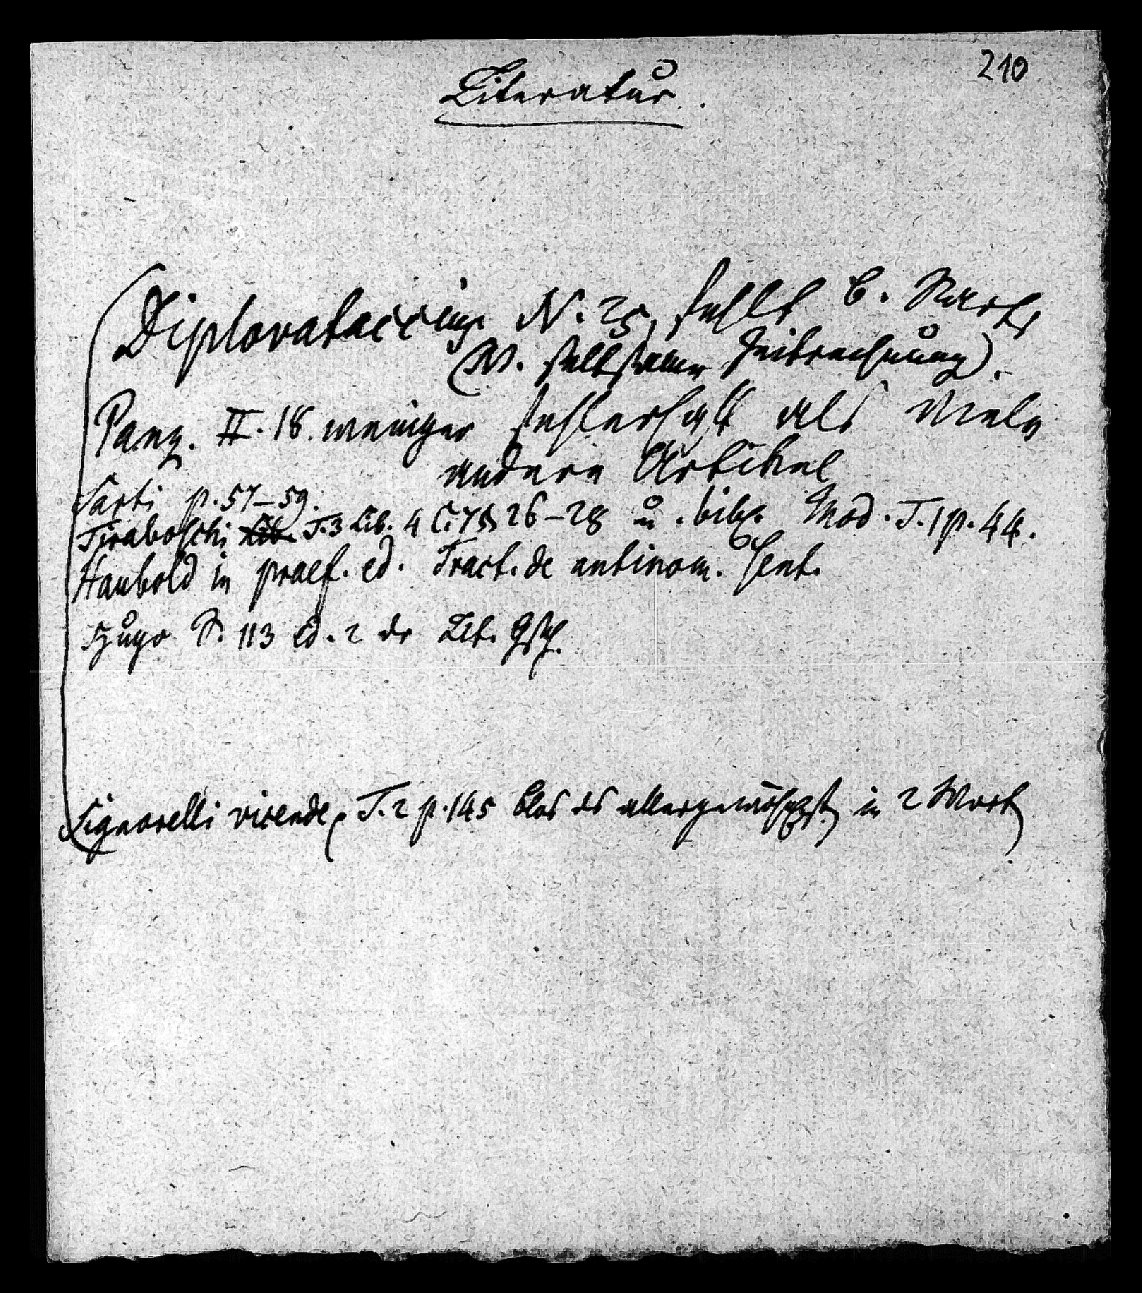 210
Literatur.
Diplovataccius N. 25, fehlt b. Sarti
(N. seltsame Zeitrechnung).
Panz. II. 18. weniger fehlerhaft als viele
andere Artikel
Sarti p. 57–59.
Tiraboschi Lib. T. 3 Lib. 4 C. 7 § 26–28 u. bibl. Mod. T. 1 p. 44.
Haubold in praef. ed. Tract. de antinom.
Hugo S. 113 ed. 2 der Lit. Gsch.
Signorelli vicende T. 2 p. 145 blos das allergewöhnlichste in 2 Wort